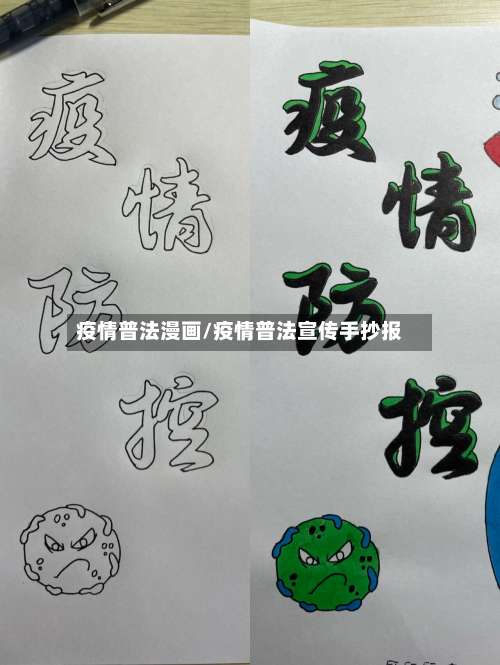 疫
情
防
控
疫
情
防
控
疫情普法漫画/疫情普法宣传手抄报